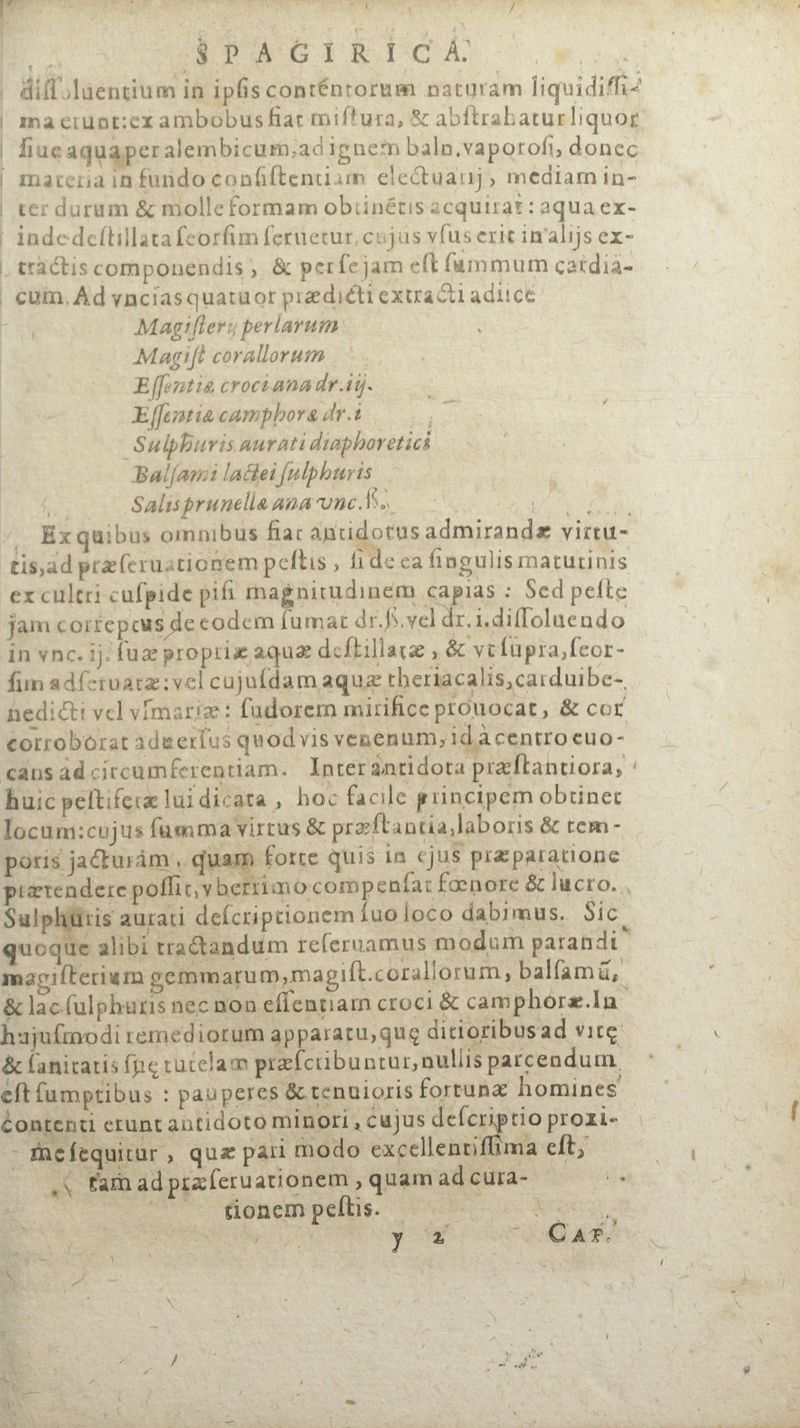 SPAGIRICA.
dissoluentium in ipsis contentorum naturam liquidissi-
ma erunt: ex ambobus fiat mistura, & abstrahatur liquor
siue aqua per alembicum, ad ignem baln. vaporosi, donec
materia in fundo consistentiam electuarij, mediam in-
ter durum & molle formam obtinētis acquirat: aqua ex-
inde destillata seorsim seruetur, cujus vsus erit in alijs ex-
tractis componendis, & per se jam est summum cardia-
cum. Ad vncias quatuor prædicti extracti adiice
Magisterij perlarum
Magist corallorum
Essentiæ croci ana dr. iij.
Essentiæ camphoræ dr. i
Sulphuris aurati diaphoretici
Balsami lactei sulphuris
Salis prunellæ ana vnc. ß.
Ex quibus omnibus fiat antidotus admirandæ virtu-
tis, ad præseruationem pestis, si de ea singulis matutinis
ex cultri cuspide pisi magnitudinem capias: Sed peste
jam correptus de eodem sumat dr. ß. vel dr. i. dissoluendo
in vnc. ij. suæ propriæ aquæ destillatæ, & vt supra, seor-
sim adseruatæ: vel cujusdam aquæ theriacalis, cardui be-
nedicti vel vlmariæ: sudorem mirifice prouocat, & cor
corroborat aduersus quodvis venenum, id à centro euo-
cans ad circumferentiam. Inter antidota præstantiora,
huic pestiferæ lui dicata, hoc facile principem obtinet
locum: cujus summa virtus & præstantia, laboris & tem-
poris jacturam, quam forte quis in ejus præparatione
prætendere possit, vberrimo compensat fœnore & lucro.
Sulphuris aurati descriptionem suo loco dabimus. Sic
quoque alibi tractandum reseruamus modum parandi
magisterium gemmarum, magist. corallorum, balsamū,
& lac sulphuris nec non essentiam croci & camphoræ. In
hujusmodi remediorum apparatu, quę ditioribus ad vitę
& sanitatis suę tutelam præscribuntur, nullis parcendum
est sumptibus: pauperes & tenuioris fortunæ homines
contenti erunt antidoto minori, cujus descriptio proxi-
me sequitur, quæ pari modo excellentissima est,
tam ad præseruationem, quam ad cura-
tionem pestis.
y 2 CAP.